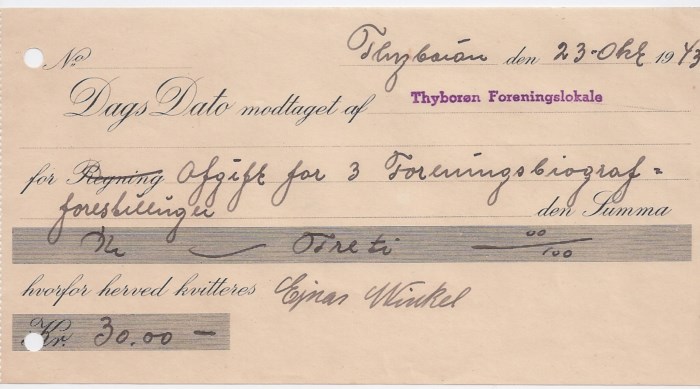 No
Thyborøn den 23-Okt 1943
Dags Dato modtaget af Thyborøn Foreningslokale
for Regning Afgift for 3 Foreningsbiograf=
forestillinger den Summa
Kr — Treti 00/100
hvorfor herved kvitteres Ejnar Winkel
Kr. 30.00 —